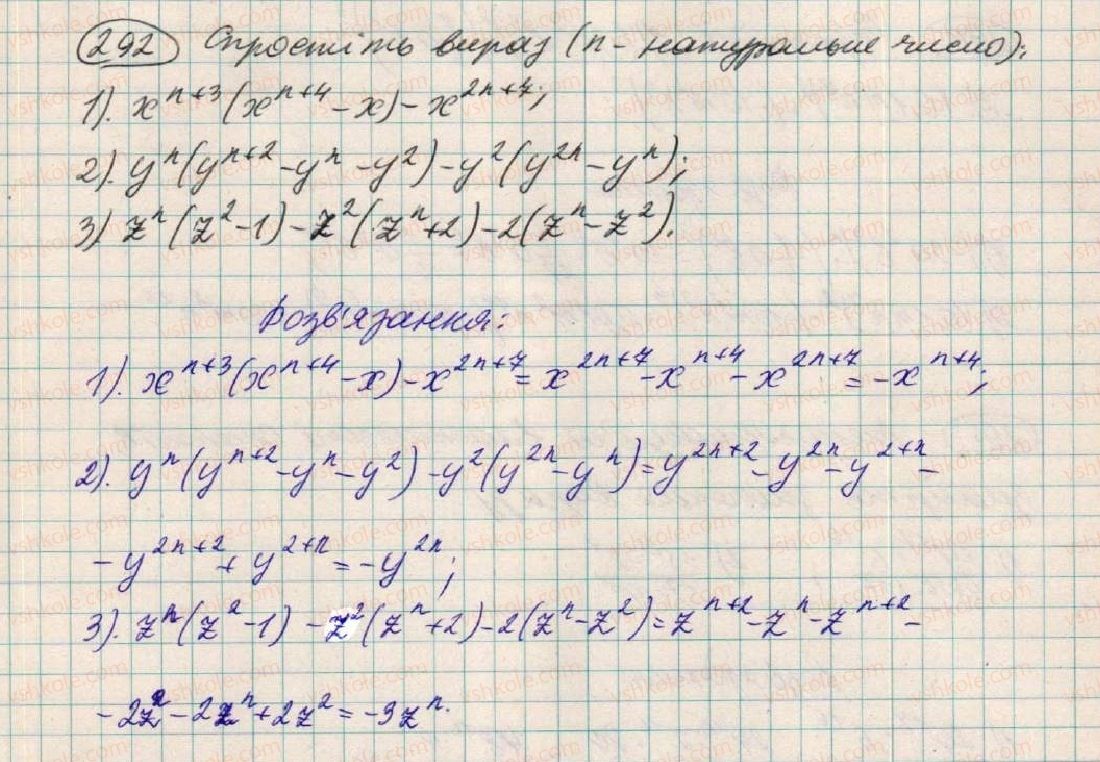 292 Спростіть вираз (n - натуральне число):
1). x^{n+3}(x^{n+4} - x) - x^{2n+7};
2). y^n(y^{n+2} - y^n - y^2) - y^2(y^{2n} - y^n);
3) z^n(z^2 - 1) - z^2(z^n + 2) - 2(z^n - z^2).
Розв'язання:
1). x^{n+3}(x^{n+4} - x) - x^{2n+7} = x^{2n+7} - x^{n+4} - x^{2n+7} = -x^{n+4};
2). y^n(y^{n+2} - y^n - y^2) - y^2(y^{2n} - y^n) = y^{2n+2} - y^{2n} - y^{2+n} -
- y^{2n+2} + y^{2+n} = -y^{2n};
3). z^n(z^2 - 1) - z^2(z^n + 2) - 2(z^n - z^2) = z^{n+2} - z^n - z^{n+2} -
- 2z^2 - 2z^n + 2z^2 = -3z^n.